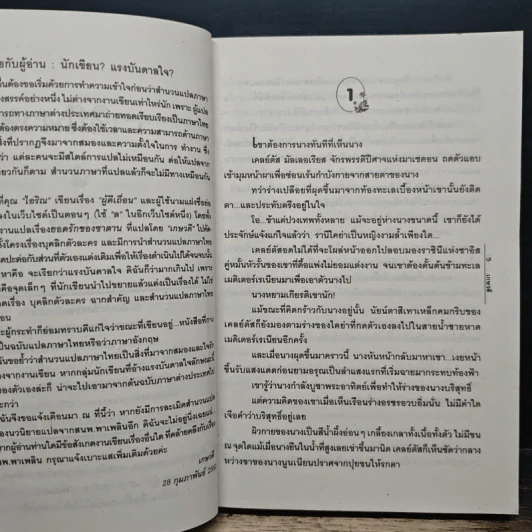 ยกับผู้อ่าน : นักเขียน? แรงบันดาลใจ?
ื่นต้องขอเริ่มด้วยการทำความเข้าใจก่อนว่าสำนวนแปลภาษา
งสรรค์อย่างหนึ่ง ไม่ต่างจากงานเขียนเท่าไหร่นัก เพราะ ผู้แปล
รถทางภาษาต่างประเทศมาถ่ายทอดเรียบเรียงเป็นภาษาไทย
องตรงความหมาย ซึ่งต้องใช้เวลาและความสามารถด้านภาษา
งที่ปรากฏจึงมาจากสมองและความตั้งใจในการ ทำงาน ซึ่ง
ว่า แต่ละคนจะมีสไตล์การแปลไม่เหมือนกัน ต่อให้แปลจาก
ยวกันก็ตาม สำนวนที่แปลแล้วก็จะไม่มีทางเหมือนกัน
ที่คุณ "ไอริณ" เขียนเรื่อง "ผู้ดีเถื่อน" และผู้ใช้นามแฝงชื่อย่อ
งในเว็บไซต์เป็นตอนๆ (ใช้ "ล" ในอีกเว็บไซต์หนึ่ง) โดยทั้ง
างประเทศเรื่อง ยอดรักของซาตาน ที่แปลโดย "เกษวดี" ไปทั้ง
งโครงเรื่องบุคลิกตัวละคร และมีการนำสำนวนแปลภาษาไทย
ดปะต่อกับส่วนที่ตัวเองแต่งเติมเพื่อให้เรื่องดำเนินไปได้จนจบนั้น
หาคือ จะเรียกว่าแรงบันดาลใจ ดิฉันก็ว่ามากเกินไป เพราะ
อจุดเล็กๆ ที่นักเขียนนำไปขยายแล้วแต่งเป็นเรื่องได้ ไม่ใช่
เรื่อง บุคลิกตัวละคร ฉากสำคัญ และสำนวนแปลภาษาไทย
ะผู้กระทำก็ย่อมทราบดีแก่ใจว่าขณะที่เขียนอยู่...หนังสือที่กาง
เป็นฉบับแปลภาษาไทยหรือว่าภาษาอังกฤษ
ันขอย้ำว่าสำนวนแปลภาษาไทยเป็นสิ่งที่มาจากสมองและใจรัก
งานเขียน หากกลุ่มนักเขียนที่อ้างแรงบันดาลใจลักษณะนี้
ของตัวเองล่ะก็ น่าจะไปเอามาจากต้นฉบับภาษาต่างประเทศไป
ะกว่า
ฉันจึงขอแจ้งเตือนมา ณ ที่นี้ว่า หากยังมีการละเมิดสำนวน
องนวนิยายแปลจากสนพ.พาเพลิน อีก ดิฉันจะไม่อยู่นิ่งเฉยแน่
ากผู้อ่านท่านใดมีข้อสังเกตงานเขียนเรื่องอื่นใด ที่คล้ายคลึงกับเรื่อง
พ.พาเพลิน กรุณาแจ้งเบาะแสเพิ่มเติมด้วยค่ะ
เกษวดี
28 กุมภาพันธ์
1
เขาต้องการนางทันทีที่เห็นนาง
เคลย์ตัส มัลเลอเรียส จักรพรรดิปีศาจแห่งมาเซดอน ถดตัวแอบ
เข้ามุมหน้าผาเพื่อซ่อนเร้นกำบังกายจากสายตาของนาง
ทว่าร่างเปลือยที่ผุดขึ้นมาจากท้องทะเลเบื้องหน้าเขานั้นยังติด
ตา...และประทับตรึงอยู่ในใจ
โอ...ข้าแต่ปวงเทพทั้งหลาย แม้จะอยู่ห่างนางขนาดนี้ เขาก็ยังได้
ประจักษ์แจ้งแก่ใจแล้วว่า รานีใดย่าเป็นหญิงงามล้ำเพียงใด...
เคลย์ตัสอดไม่ได้ที่จะโผล่หน้าออกไปลอบมองราชินีแห่งซาอีส
คู่หมั้นหัวรั้นของเขาที่ดื้อแพ่งไม่ยอมแต่งงาน จนเขาต้องดั้นด้นข้ามทะเล
เมดิเตอร์เรเนียนมาเพื่อเอาตัวนางไป
นางหยามเกียรติเขานัก!
แม้ขณะที่คิดกร้าวกับนางอยู่นั้น นัยน์ตาสีเทาเหล็กคมกริบของ
เคลย์ตัสก็ยังมองตามร่างของใดย่าที่กดตัวเองลงไปในสายน้ำชายหาด
เมดิเตอร์เรเนียนอีกครั้ง
และเมื่อนางผุดขึ้นมาคราวนี้ นางหันหน้ากลับมาหาเขา...เงยหน้า
ขึ้นรับแสงแดดอ่อนยามอรุณเป็นลำแสงแรกที่เริ่มฉายมากระทบท้องฟ้า
เขารู้ว่านางกำลังบูชาพระอาทิตย์เพื่อทำให้ร่างของนางบริสุทธิ์
แต่ความคิดของเขาเมื่อเห็นเรือนร่างอรชรอวบอิ่มนั่น ไม่มีคำใด
เจือคำว่าบริสุทธิ์อยู่เลย
ผิวกายของนางเป็นสีน้ำผึ้งอ่อนๆ เกลี้ยงเกลาทั้งเนื้อทั้งตัว ไม่มีขน
ณ จุดใดแม้เมื่อนางยืนในน้ำที่สูงเลยเข่าขึ้นมานิด เคลย์ตัสก็เห็นชัดว่ากลาง
หว่างขาของนางนูนเนียนปราศจากปุยขนให้รกตา
5
เกษวดี